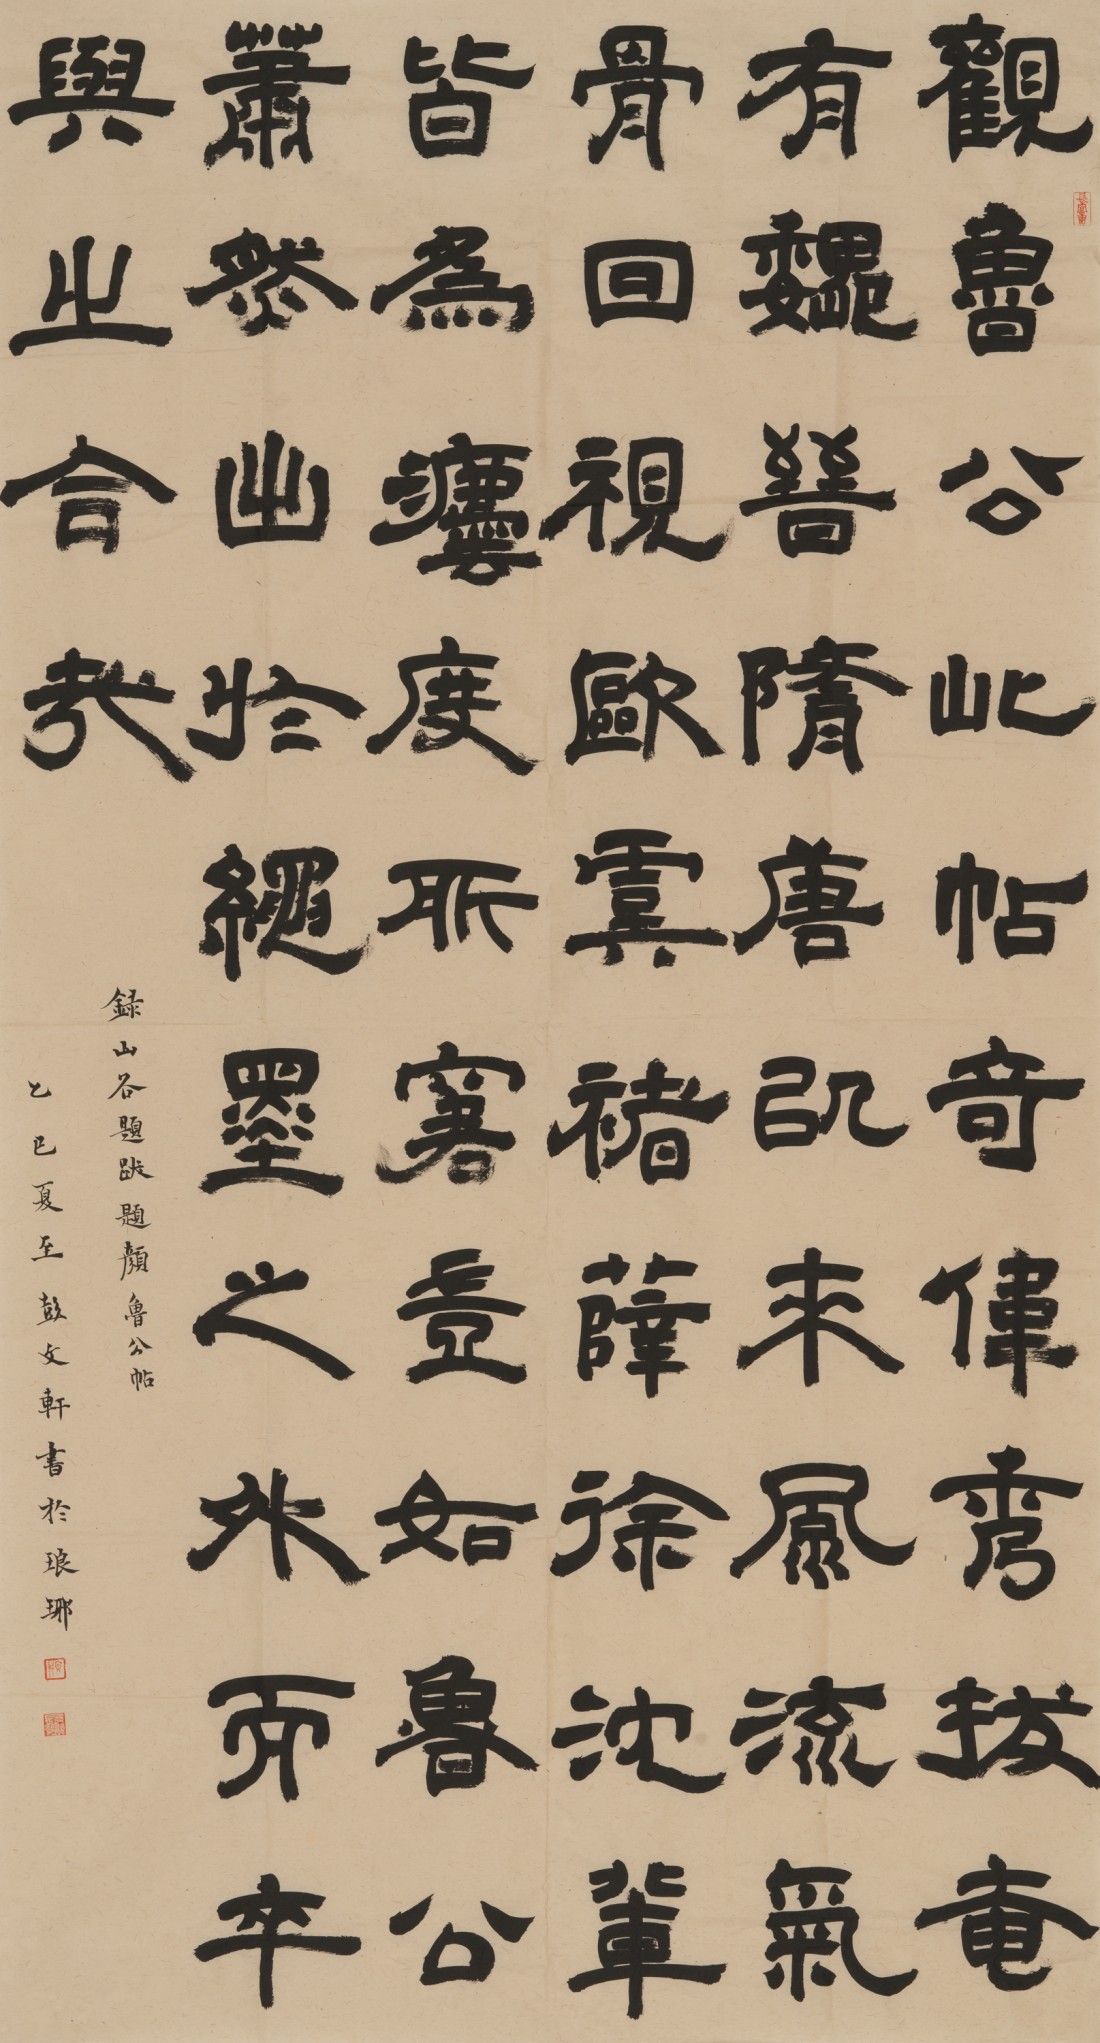 觀魯公此帖奇偉秀拔奄
有魏晉隋唐以來風流氣
骨回視歐虞褚薛徐沈輩
皆為灋度所窘豈如魯公
蕭然出於繩墨之外而卒
與之合哉
録山谷題跋題顏魯公帖
乙巳夏至彭文軒書於琅琊